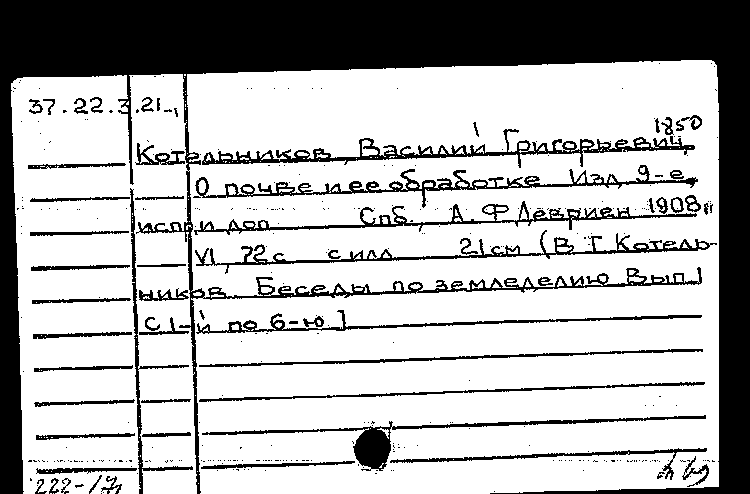 37.22.3.21-1
1850
Котельников, Василий Григорьевич,
О почве и ее обработке Изд 9-е,
испр и доп Спб., А. Ф Девриен 1908
VI, 72 с с илл 21 см (В Г Котель-
ников Беседы по земледелию Вып 1
С 1-й по 6-ю]